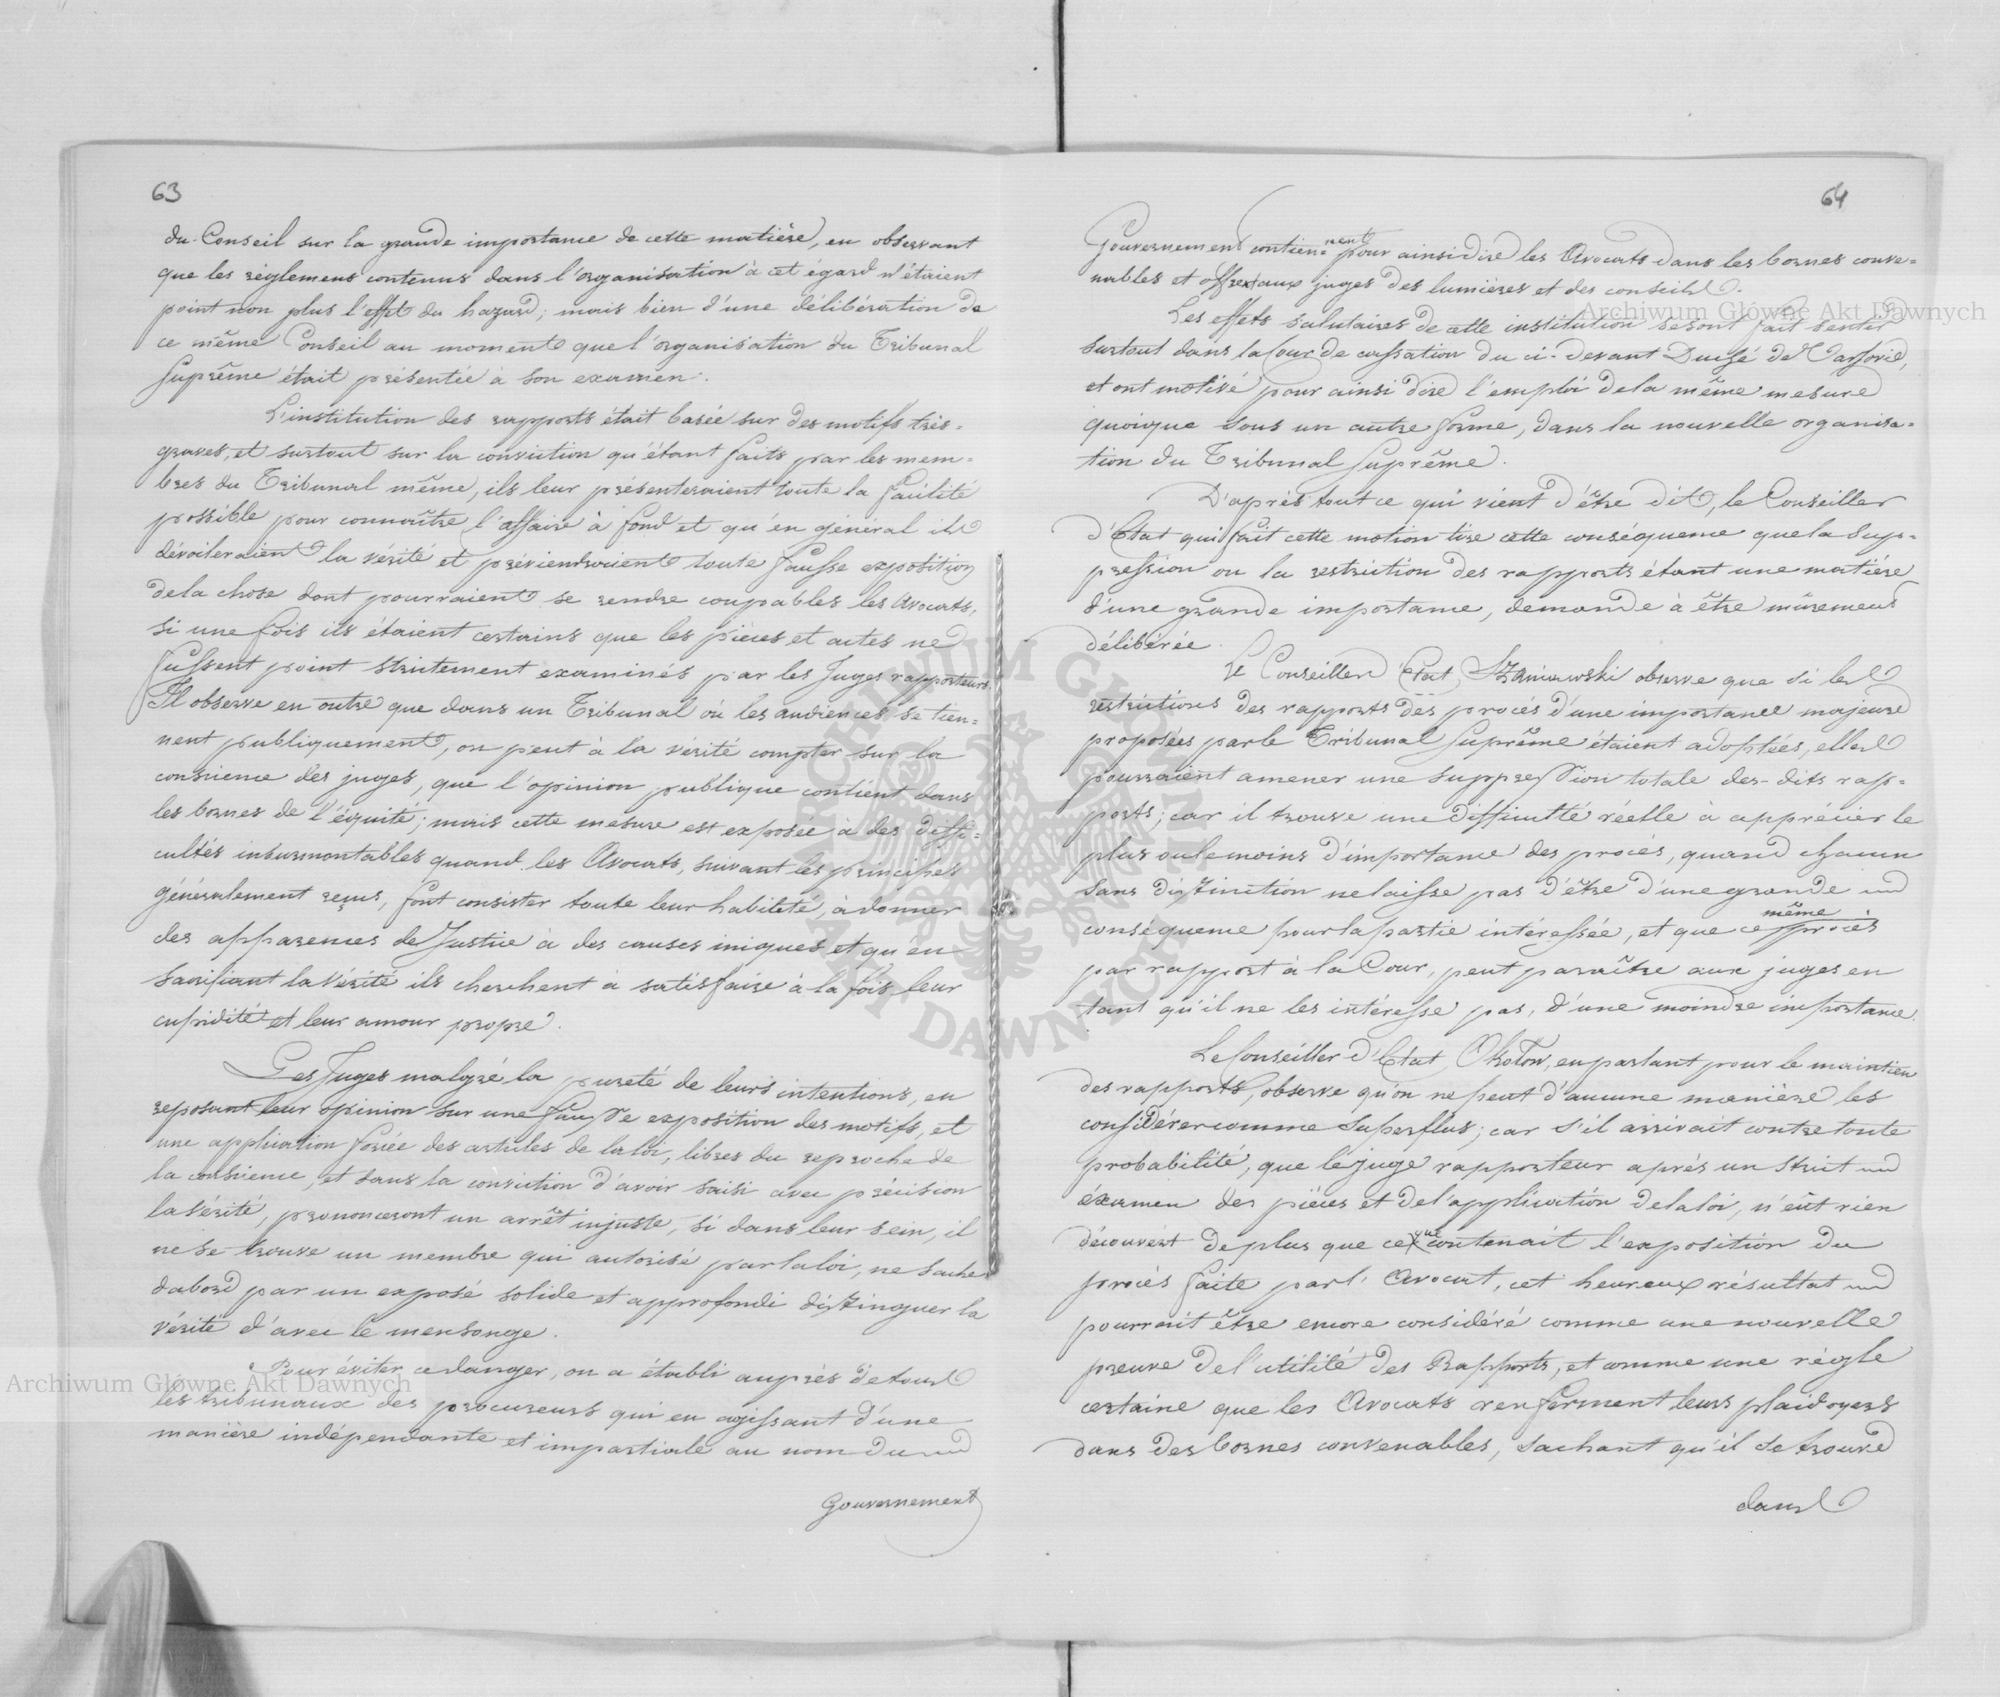 63
du Conseil sur la grande importance de cette matière, en observant
que les règlemens contenus dans l'organisation à cet égard n'étaient
point non plus l'effet du hazard; mais bien d'une délibération de
ce même Conseil au moment que l'organisation du Tribunal
Suprême était présentée à son examen.
L'institution des rapports était basée sur des motifs très-
graves, et surtout sur la conviction qu'étant faits par les mem=
bres du Tribunal même, ils leur présenteraient toute la facilité
possible pour connaître l'affaire à fond et qu'en général ils
dévoileraient la vérité et préviendraient toute fausse exposition
de la chose dont pourraient se rendre coupables les Avocats,
si une fois ils étaient certains que les pièces et actes ne
fussent point strictement examinés par les Juges rapporteurs.
Il observe en outre que dans un Tribunal où les audiences se tien=
nent publiquement, on peut à la vérité compter sur la
conscience des juges, que l'opinion publique contient dans
les bornes de l'équité; mais cette mesure est exposée à des diffi=
cultés insurmontables quand les Avocats, suivant les principes
généralement reçus, font consister toute leur habileté, à donner
des apparences de Justice à des causes iniques et qu'en
sacrifiant la vérité ils cherchent à satisfaire à la fois leur
cupidité et leur amour propre.
Les Juges malgré la pureté de leurs intentions, en
reposant leur opinion sur une fausse exposition des motifs, et
une application forcée des articles de la loi, libres du reproche de
la conscience, et dans la conviction d'avoir saisi avec précision
la vérité, prononceront un arrêt injuste, si dans leur sein, il
ne se trouve un membre qui autorisé par la loi, ne sache
dabord par un exposé solide et approfondi distinguer la
vérité d'avec le mensonge.
Pour éviter ce danger, on a établi auprès de tous
les tribunaux des procureurs qui en agissant d'une
manière indépendante et impartiale au nom du
Gouvernement
64
Gouvernement contien=nent pour ainsi dire les Avocats dans les bornes conve=
nables et offrent aux juges des lumières et des conseils.
Les effets salutaires de cette institution se sont fait sentir
surtout dans la Cour de cassation du ci-devant Duché de Varsovie,
et ont motivé pour ainsi dire l'emploi de la même mesure
quoique sous un autre forme, dans la nouvelle organisa=
tion du Tribunal Suprême.
D'après tout ce qui vient d'être dit, le Conseiller
d'Etat qui fait cette motion tire cette conséquence que la sup=
pression ou la restriction des rapports étant une matière
d'une grande importance, demande à être mûrement
délibérée.
Le Conseiller d'Etat Szaniawski observe que si les
restrictions des rapports des procès d'une importance majeure
proposées par le Tribunal Suprême étaient adoptées, elles
pourraient amener une suppression totale des-dits rap=
ports; car il trouve une difficulté réelle à apprécier le
plus ou le moins d'importance des procès, quand chacun
sans distinction ne laisse pas d'être d'une grande
conséquence pour la partie intéressée, et que ce même procès
par rapport à la Cour, peut paraître aux juges en
tant qu'il ne les intéresse pas, d'une moindre importance.
Le Conseiller d'Etat Okolow, en parlant pour le maintien
des rapports, observe qu'on ne peut d'aucune manière les
considérer comme superflus; car s'il arrivait contre toute
probabilité, que le juge rapporteur après un strict
éxamen des pièces et de l'application de la loi, n'eût rien
découvert de plus que ce que contenait l'exposition du
procès faite par l'Avocat, cet heureux résultat
pourrait être encore considéré comme une nouvelle
preuve de l'utilité des Rapports, et comme une règle
certaine que les Avocats renferment leurs plaidoyers
dans des bornes convenables, sachant qu'il se trouve
dans
Archiwum Główne Akt Dawnych
Archiwum Główne Akt Dawnych
ARCHIWUM GŁÓWNE AKT DAWNYCH